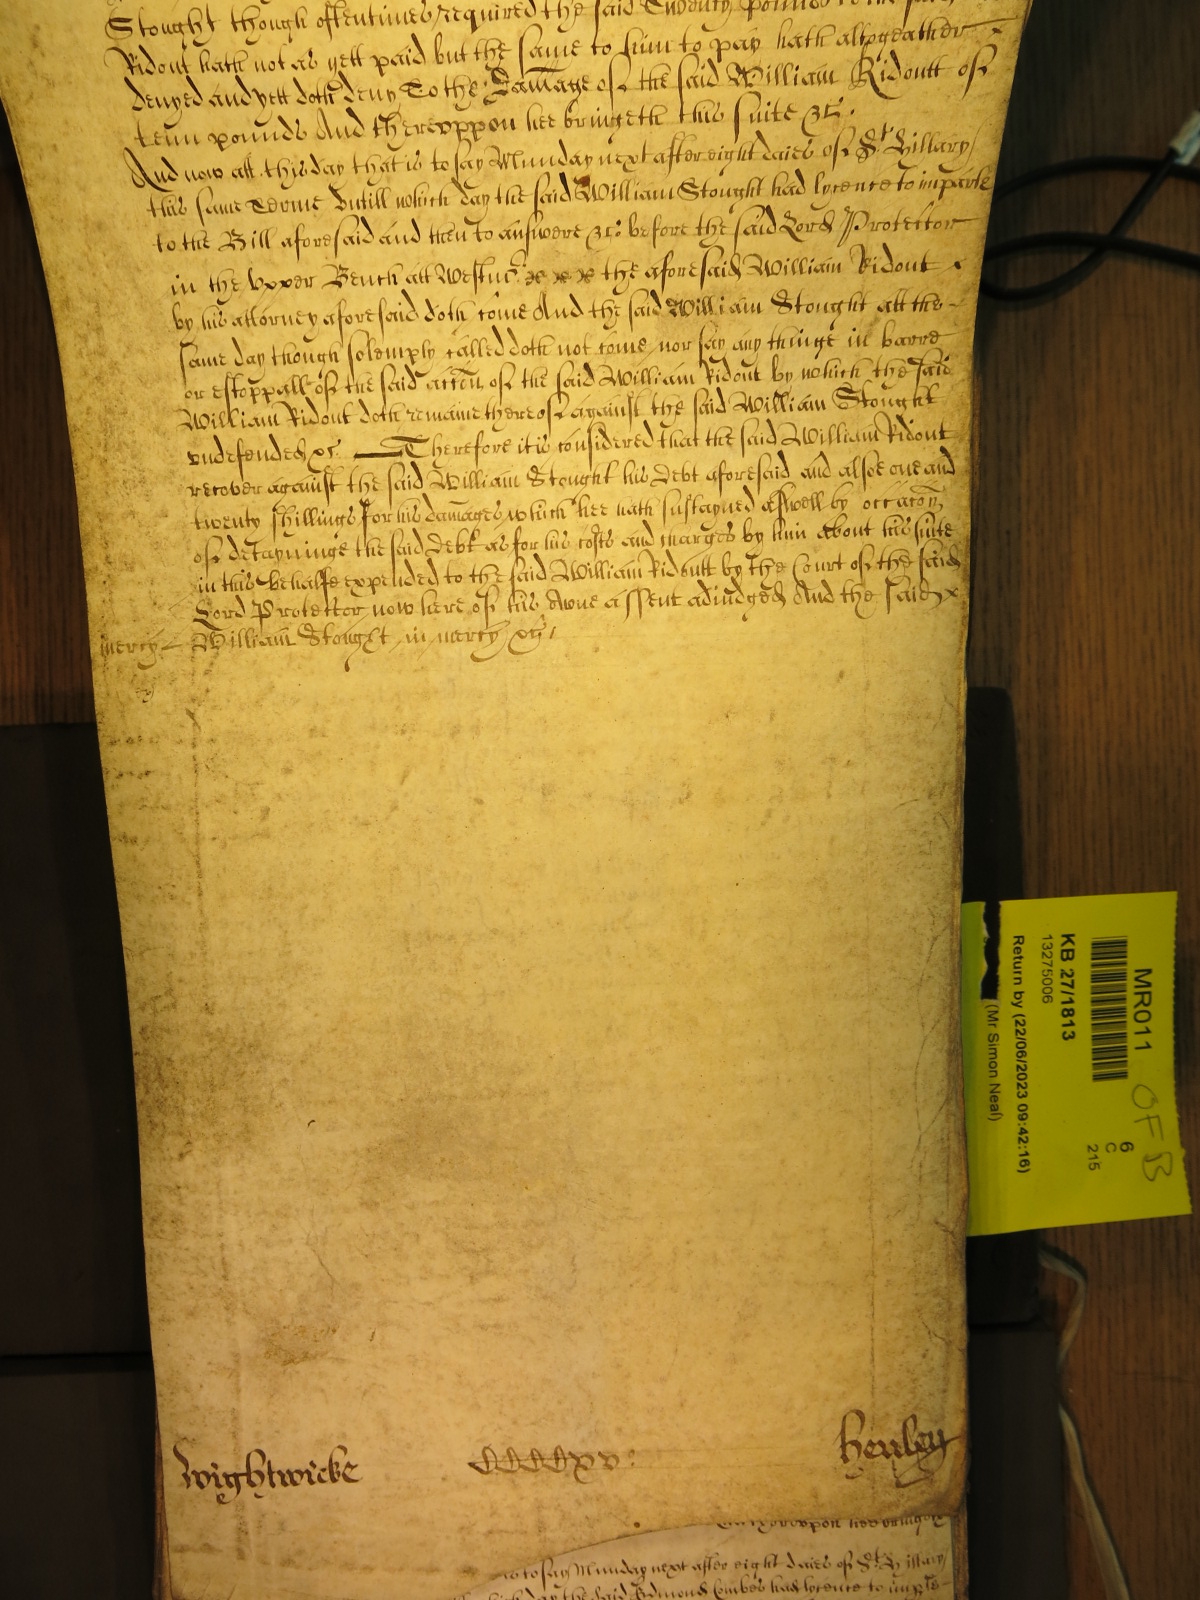 Stought though oftentimes required the said Twenty pounds to the said
Ridout hath not as yett paid but the same to him to pay hath altogeather
denyed and yett doth deny To the Damage of the said William Ridoutt of
tenn pounds And thereuppon hee bringeth this suite &c:
And now att this day that is to say Munday next after eight daies of St. Hillary
this same Terme Untill which day the said William Stought had lycence to imparle
to the Bill aforesaid and then to answere &c: before the said Lord Protector
in the Upper Bench att Westmr. x x x the aforesaid William Ridout x
by his attorney aforesaid doth come And the said William Stought att the
same day though solemply called doth not come nor say any thinge in barre
or estoppall of the said accon of the said William Ridout by which the said
William Ridout doth remaine thereof against the said William Stought
undefended &c. Therefore it is considered that the said William Ridout
recover against the said William Stought his Debt aforesaid and alsoe one and
twenty shillings for his damages which hee hath sustayned aswell by occacon
of detayninge the said Debt as for his costs and charges by him about his suite
in this behalfe expended to the said William Ridoutt by the Court of the said
Lord Protector now here of his owne assent adiudged And the said x
mercy William Stought in mercy &c:
Wightwicke CCCCxv: Henley
thereuppon hee bringeth
to say Munday next after eight daies of St. Hillary
which day the said Edmond Combes had lycence to imple-
MR011
KB 27/1813
13275006
Return by (22/06/2023 09:42:16)
(Mr Simon Neal)
6
C
215
OF B